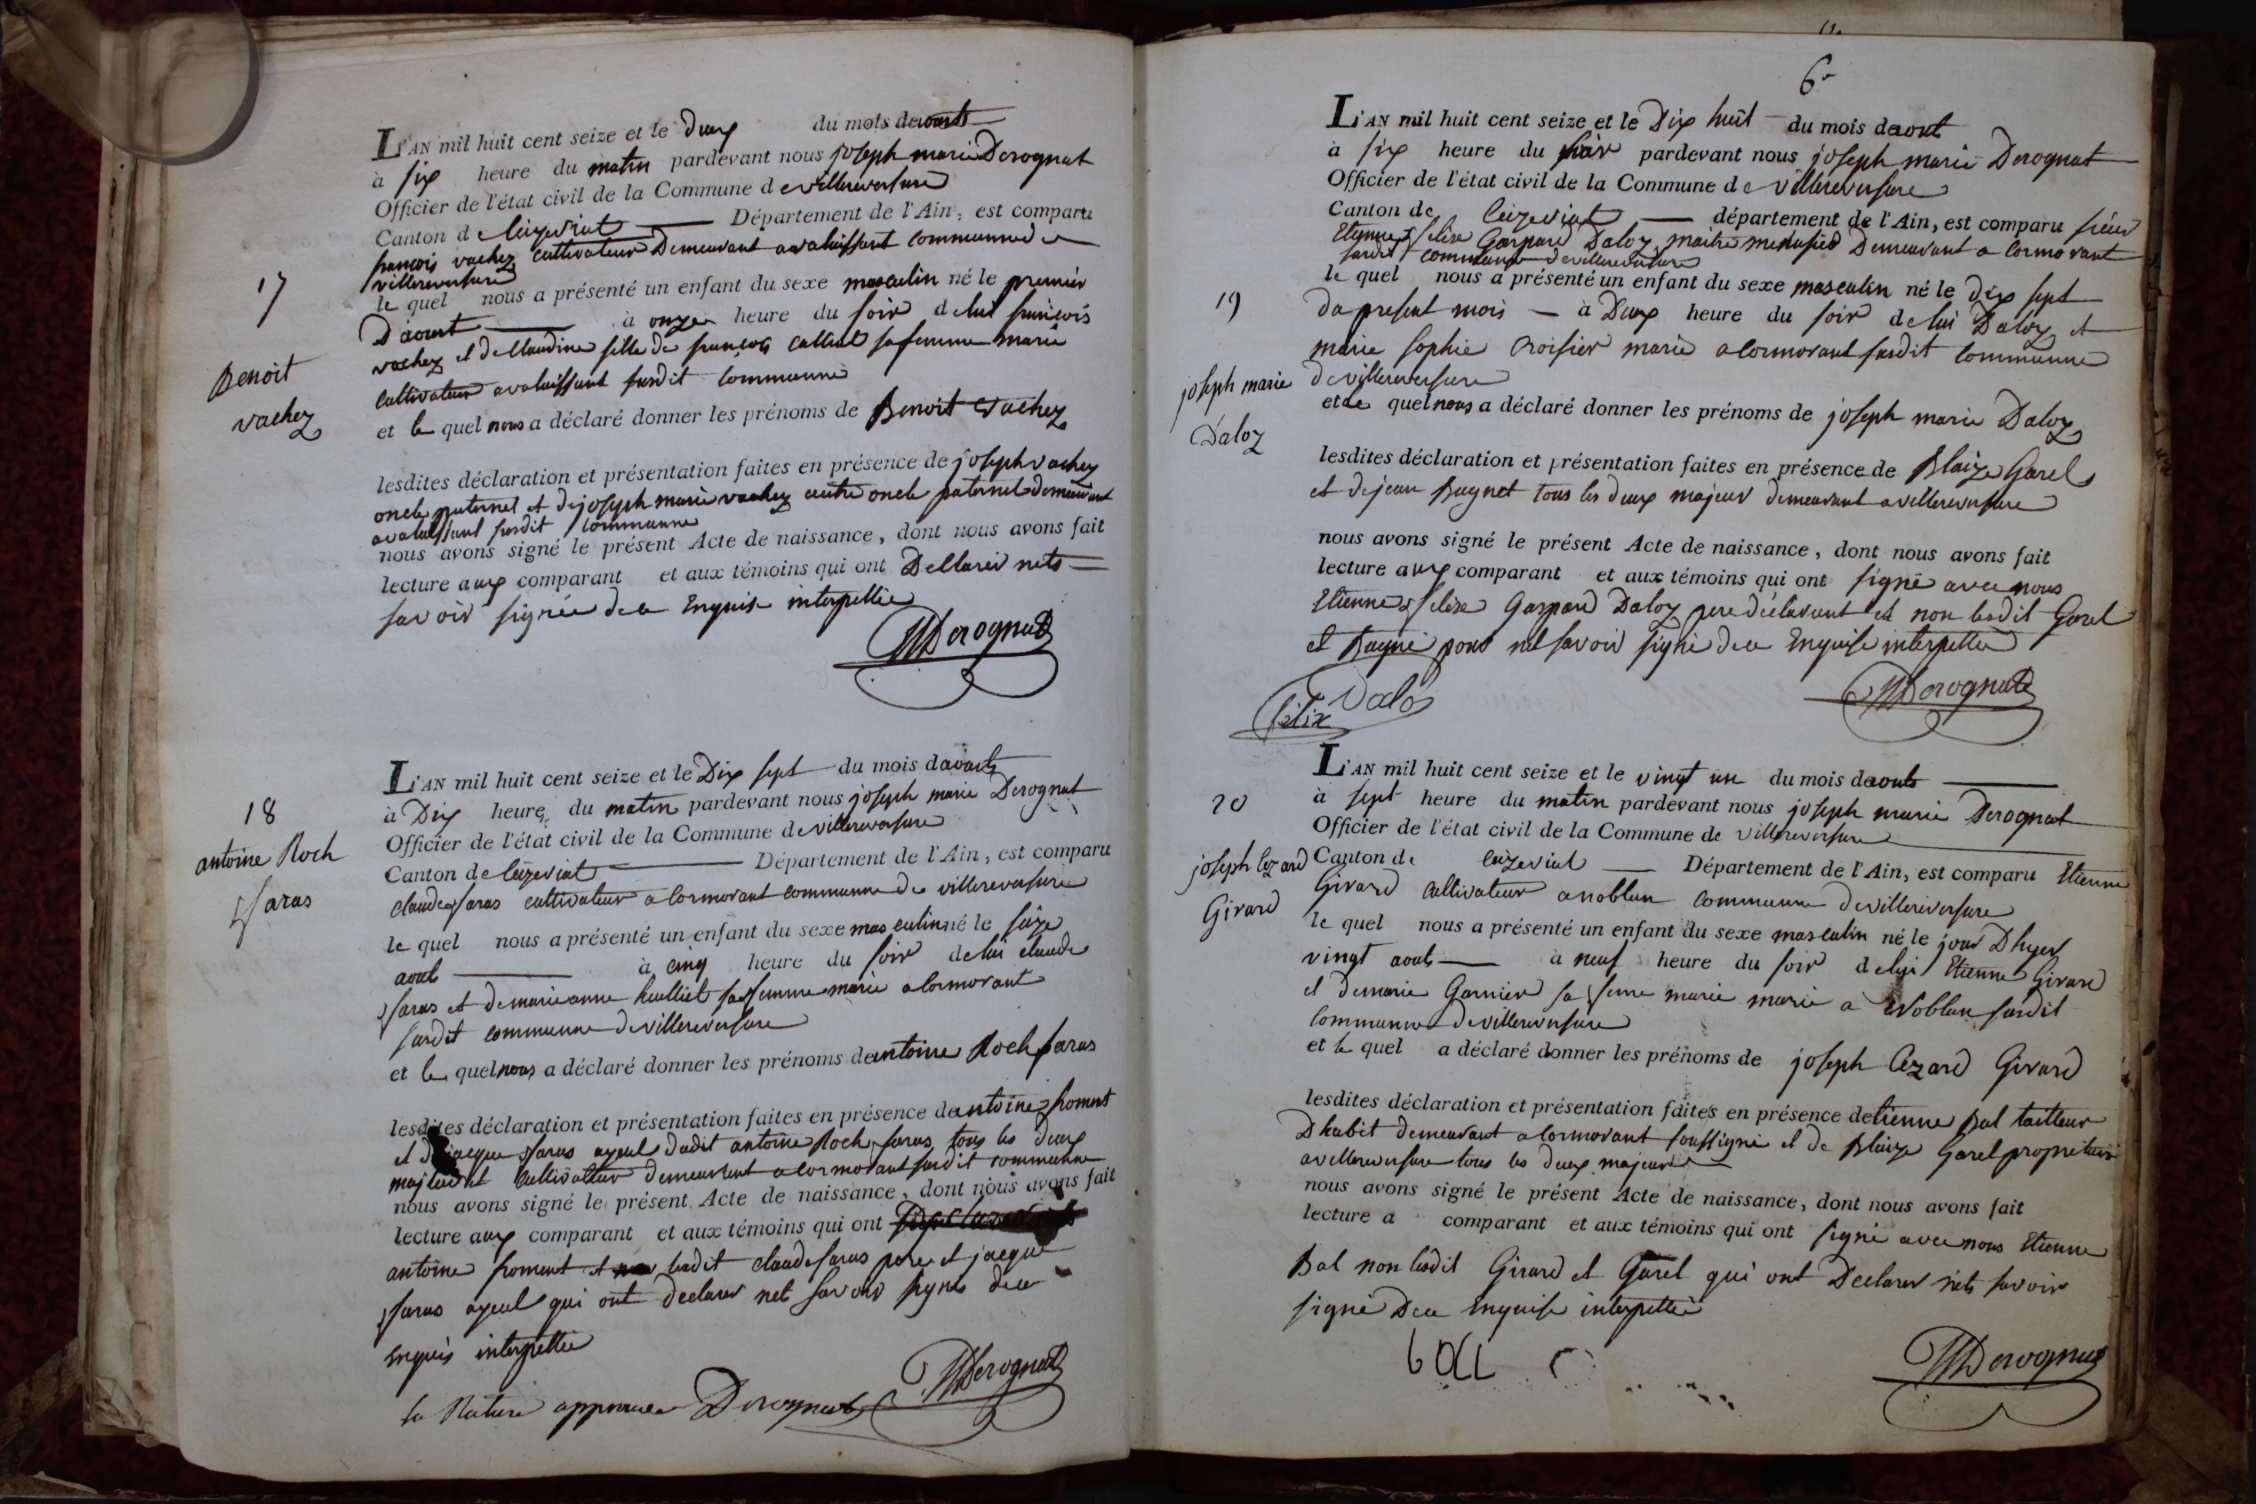 17
Benoit
vachez
L'AN mil huit cent seize et le deux du mois de aoust
à six heure du matin pardevant nous joseph marie Derognat
Officier de l'état civil de la Commune de villereversure
Canton de Ceizeriat Département de l'Ain, est comparu
françois vachez cultivateur Demeurant avaluissant communne de
villereversure
le quel nous a présenté un enfant du sexe masculin né le premier
D'aoust à onze heure du soir de lui françois
vachez et de Claudine fille de françois sa femme marié
cultivateur avaluissant susdit communne
et le quel nous a déclaré donner les prénoms de Benoit vachez
lesdites déclaration et présentation faites en présence de joseph vachez
oncle paternel et de joseph marie vachez autre oncle paternel demeurant
avaluissant susdit communne
nous avons signé le présent Acte de naissance, dont nous avons fait
lecture aux comparant et aux témoins qui ont Dellarer nets
savoir signée de ce Enquise interpellie
Derognat
18
antoine Roch
faras
L'AN mil huit cent seize et le Dix sept du mois d'aoust
à Dix heure du matin pardevant nous joseph marie Derognat
Officier de l'état civil de la Commune de villereversure
Canton de Ceizeriat Département de l'Ain, est comparu
claude faras cultivateur a Cormorant communne de villereversure
le quel nous a présenté un enfant du sexe masculin né le seize
aout à cinq heure du soir de lui claude
faras et de marieanne sa femme marié a Cormorant
susdit communne de villereversure
et le quel nous a déclaré donner les prénoms de antoine Roch faras
lesdites déclaration et présentation faites en présence de antoine froment
et de jacque faras ayeul dudit antoine Roch faras tous les deux
majeur et cultivateur demeurant a cormorant susdit communne
nous avons signé le présent Acte de naissance, dont nous avons fait
lecture aux comparant et aux témoins qui ont
antoine froment et non ledit claude faras pere et jacque
faras ayeul qui ont declarer net savoir signer de ce
enquis interpellie
la Rature approuvee Derognat Derognat
6
19
joseph marie
Daloz
L'AN mil huit cent seize et le Dix huit du mois de aout
à six heure du soir pardevant nous joseph marie Derognat
Officier de l'état civil de la Commune de villereversure
Canton de Ceizeriat département de l'Ain, est comparu sieur
Etienne felixe Gaspard Daloz maitre Demeurant a Cormorant
susdit communne de villereversure
le quel nous a présenté un enfant du sexe masculin né le dix sept
du present mois à Deux heure du soir de lui Daloz et
marie sophie Croisier marié a cormorant susdit communne
de villereversure
et le quel nous a déclaré donner les prénoms de joseph marie Daloz
lesdites déclaration et présentation faites en présence de Blaize Garel
et de jean Buynet tous les deux majeur demeurant a villereversure
nous avons signé le présent Acte de naissance, dont nous avons fait
lecture aux comparant et aux témoins qui ont signé avec nous
Etienne felixe Gaspard Daloz pere déclarant et non lesdit Garel
et pour net savoir signé de ce Enquise interpellie
felix Dalo Derognat
20
joseph Cezard
Girard
L'AN mil huit cent seize et le vingt un du mois de aout
à sept heure du matin pardevant nous joseph marie Derognat
Officier de l'état civil de la Commune de villereversure
Canton de Ceizeriat Département de l'Ain, est comparu Etienne
Girard cultivateur a noblan communne de villereversure
le quel nous a présenté un enfant du sexe masculin né le jour D'hyer
vingt aout à neuf heure du soir de lui Etienne Girard
et de marie Garnier sa feme marie marié a Noblan susdit
communne de villereversure
et le quel a déclaré donner les prénoms de joseph Cezard Girard
lesdites déclaration et présentation faites en présence de etienne Bal tailleur
D'habit demeurant a Cormorant soussigné et de Blaize Garel propriétaire
a villereversure tous les deux majeur
nous avons signé le présent Acte de naissance, dont nous avons fait
lecture a comparant et aux témoins qui ont signé avec nous Etienne
Bal non lesdit Girard et Garel qui ont Declarer nets savoir
signé De ce Enquise interpellie
Derognat